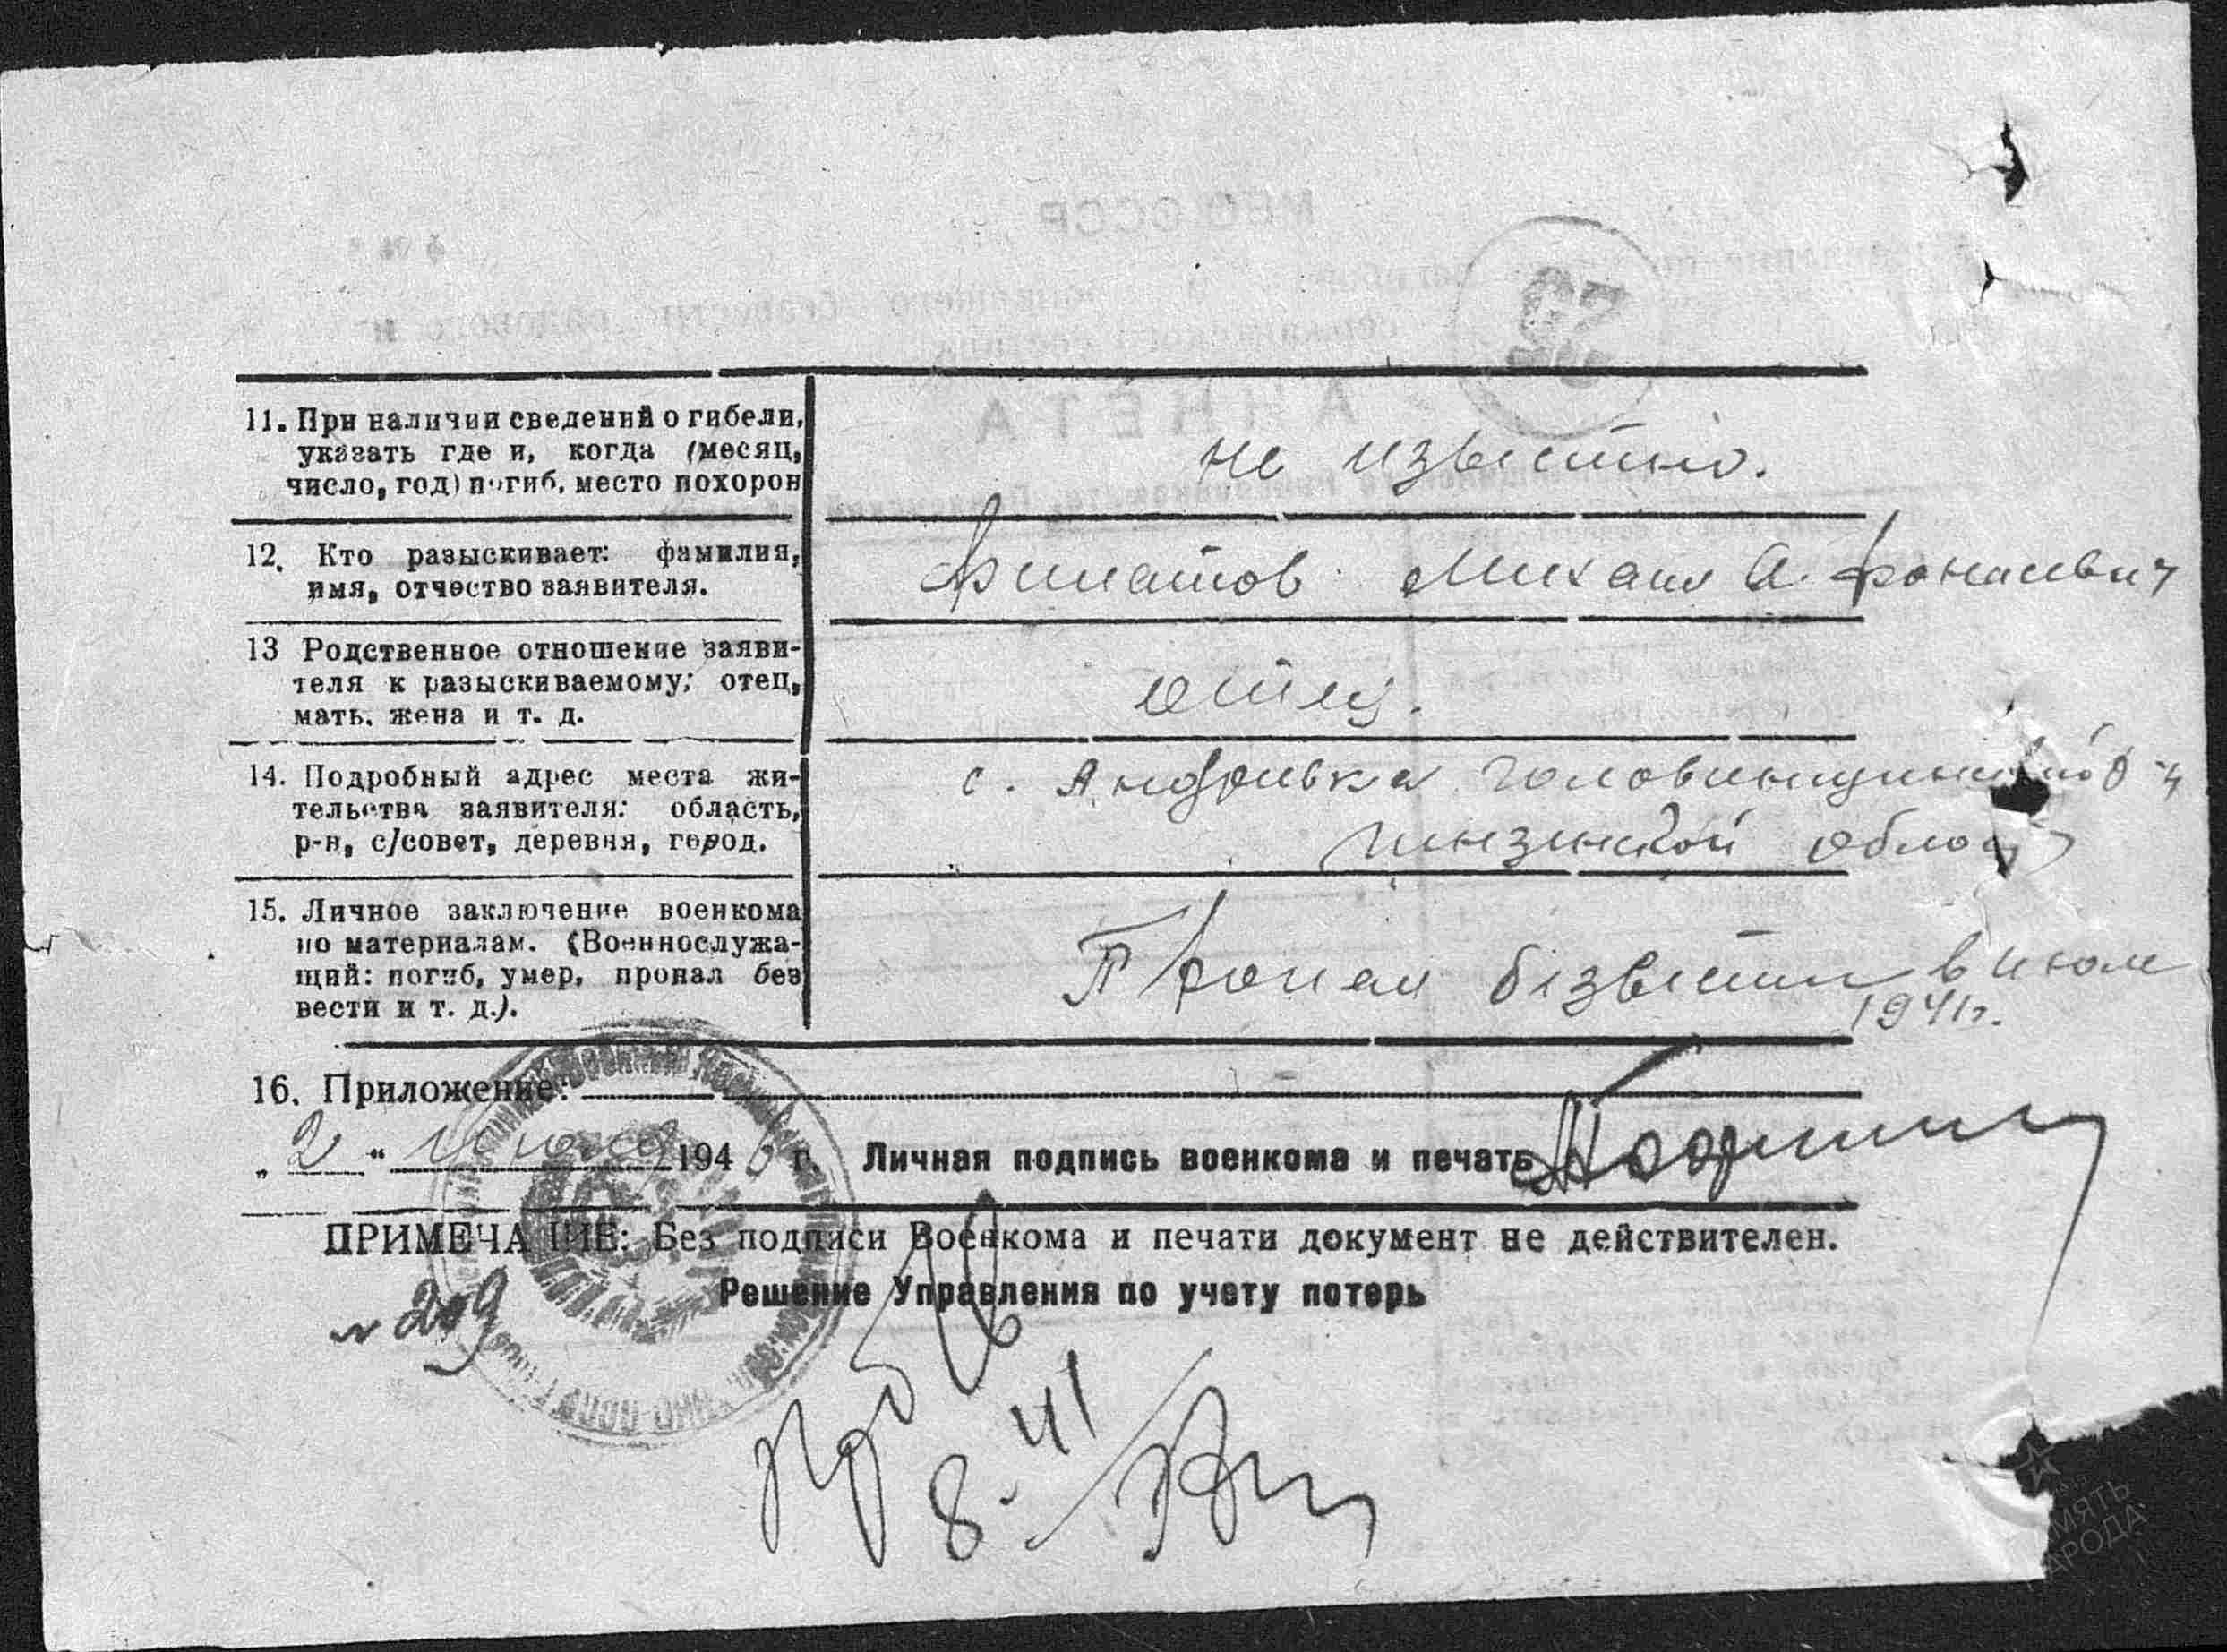 11. При наличии сведений о гибели,
указать где и, когда (месяц,
число, год) погиб, место похорон
не известно.
12. Кто разыскивает: фамилия,
имя, отчество заявителя.
Филатов Михаил Афонасевич
13 Родственное отношение заяви-
теля к разыскиваемому; отец,
мать, жена и т. д.
отец.
14. Подробный адрес места жи-
тельства заявителя: область,
р-н, с/совет, деревня, город.
с. Андреевка
пензинской
15. Личное заключение военкома
по материалам. (Военнослужа-
щий: погиб, умер, пропал без
вести и т. д.).
Пропал безвести в июле
1941 г.
16. Приложение:
„2“ июля 1946 г. Личная подпись военкома и печать
ПРИМЕЧАНИЕ: Без подписи Военкома и печати документ не действителен.
Решение Управления по учету потерь
№ 209
8. 41
ПАМЯТЬ
НАРОДА